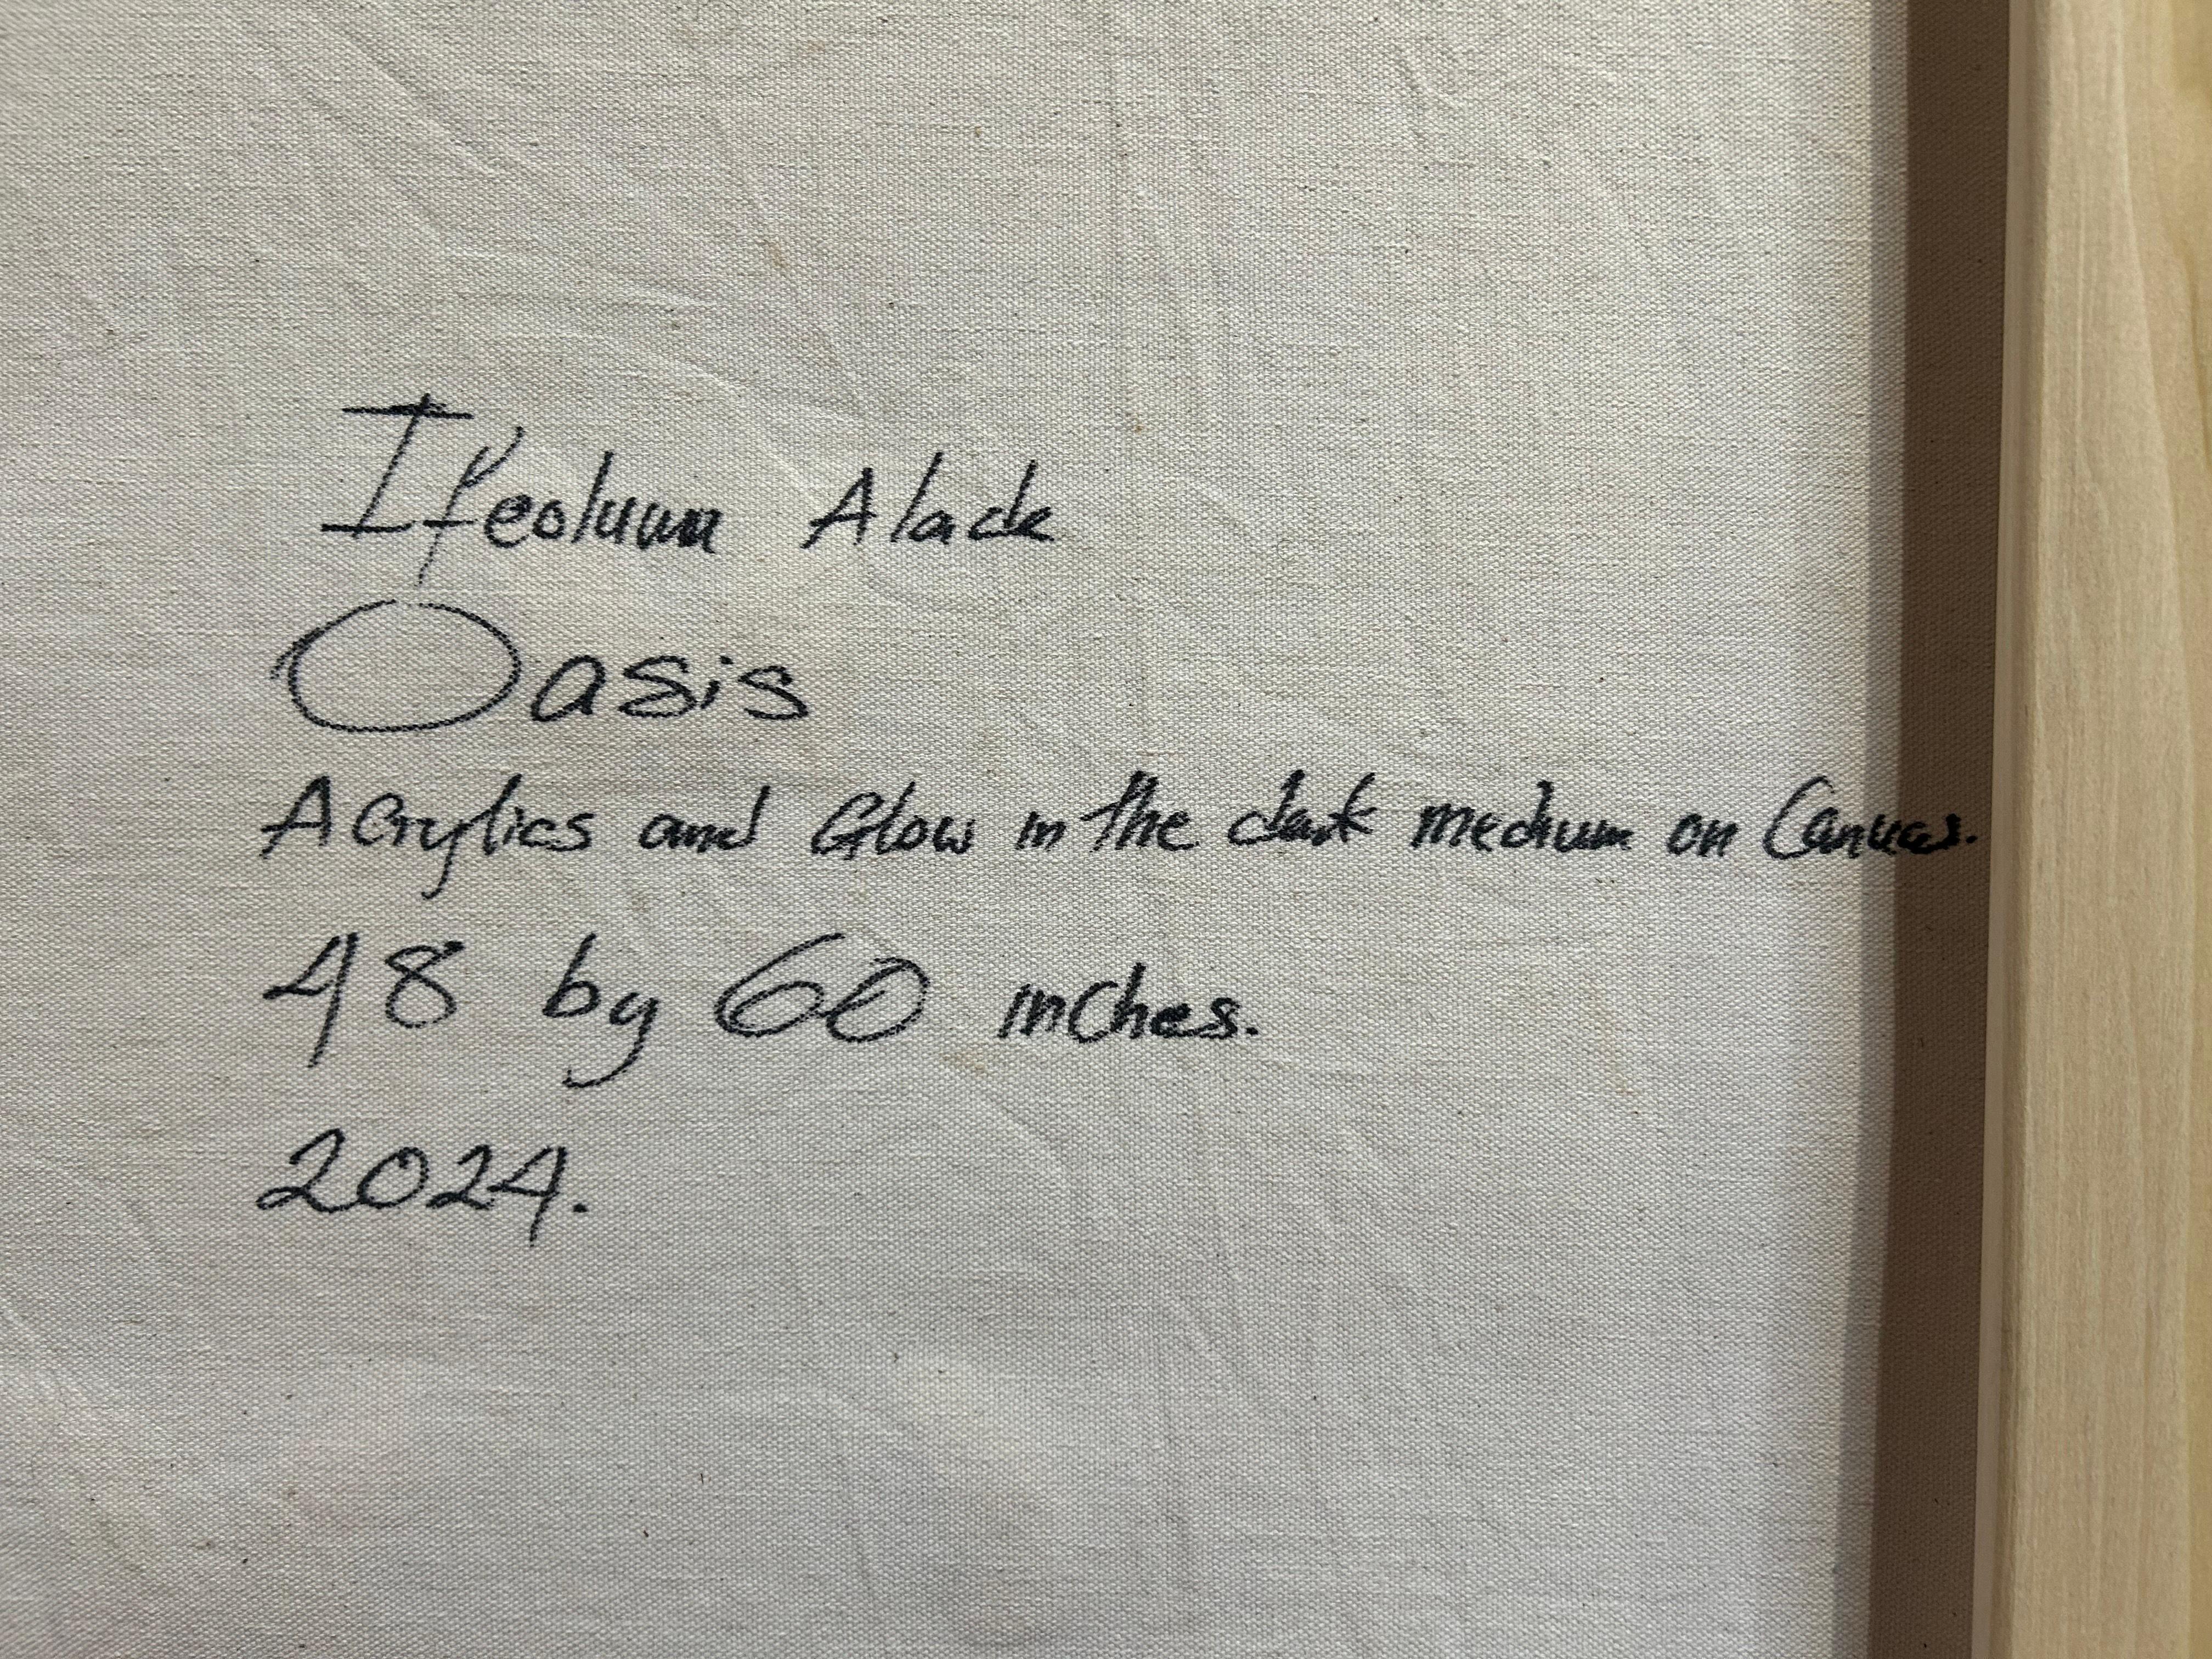 Ifeoluwa Alade
Oasis
Acrylics and Glow in the dark medium on Canvas.
48 by 60 inches.
2024.